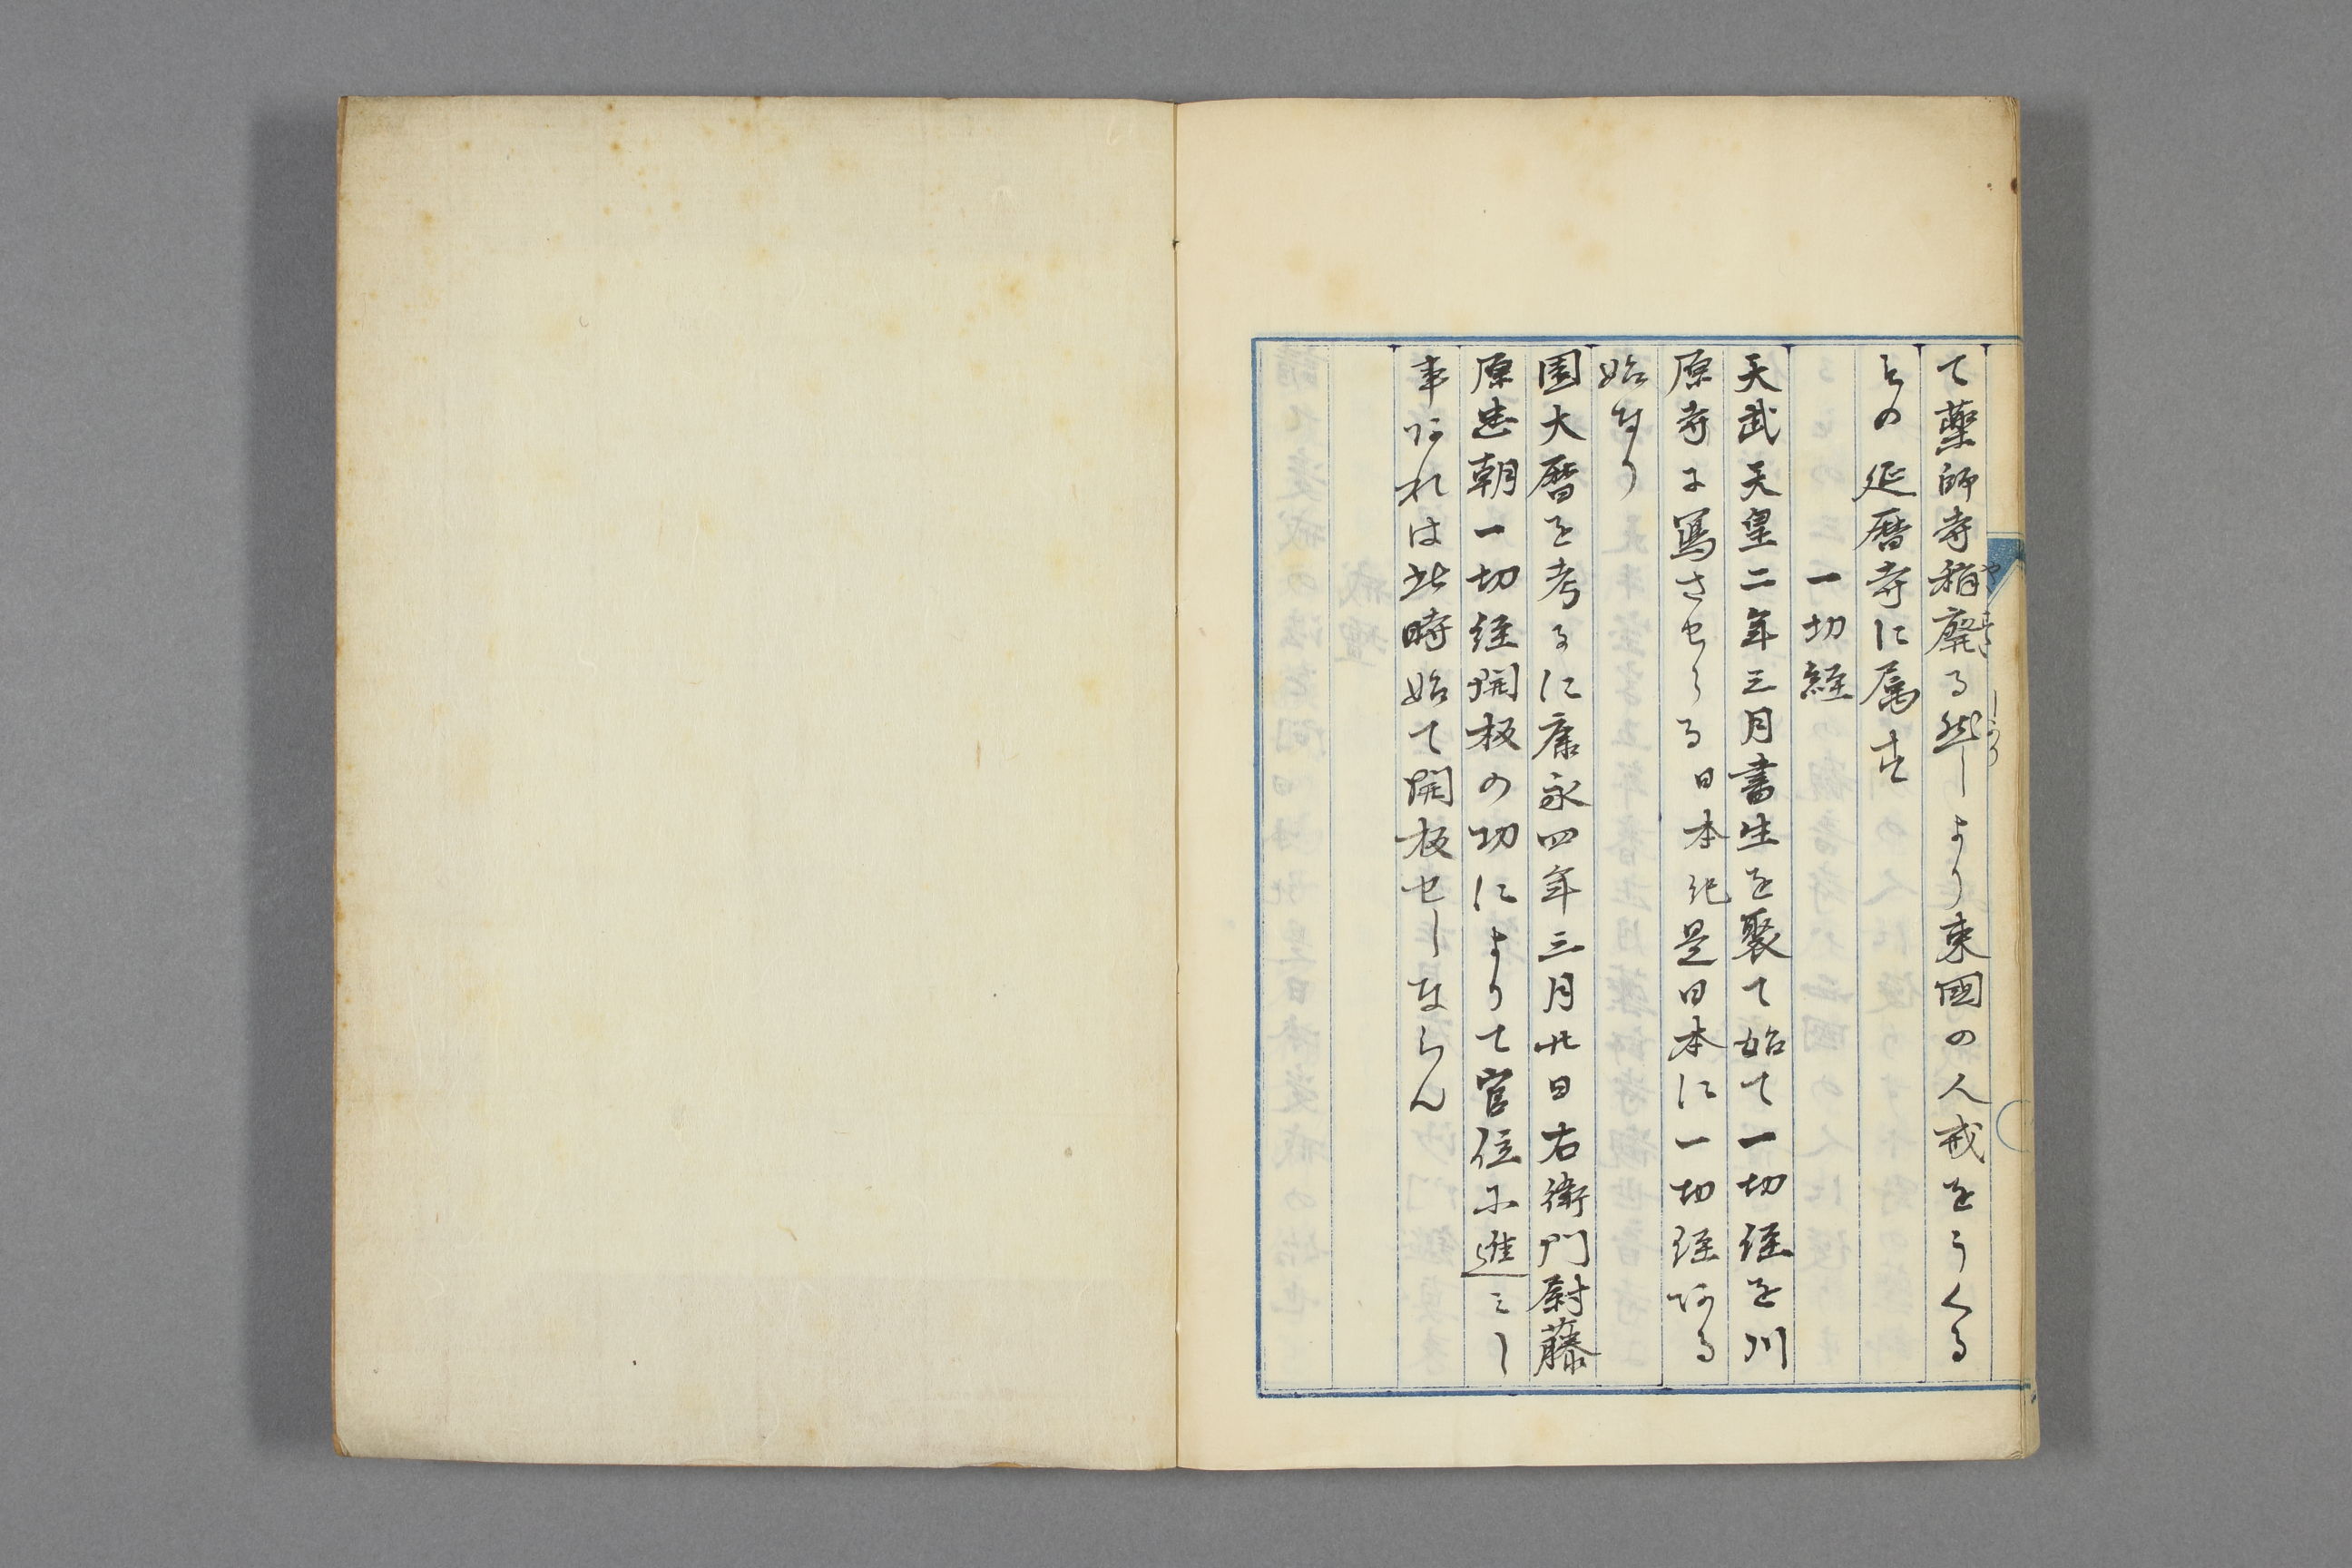 て薬師寺稍廃る然しより東國の人戒をうくる
もの延暦寺に属す
一切経
天武天皇二年三月書生を聚て始て一切経を川
原寺に写させらる日本紀是日本に一切経ある
始なり
園大暦を考るに康永四年三月廿日右衛門尉藤
原忠朝一切経開板の功によりて官位に進みし
事あれは此時始て開板せしならん